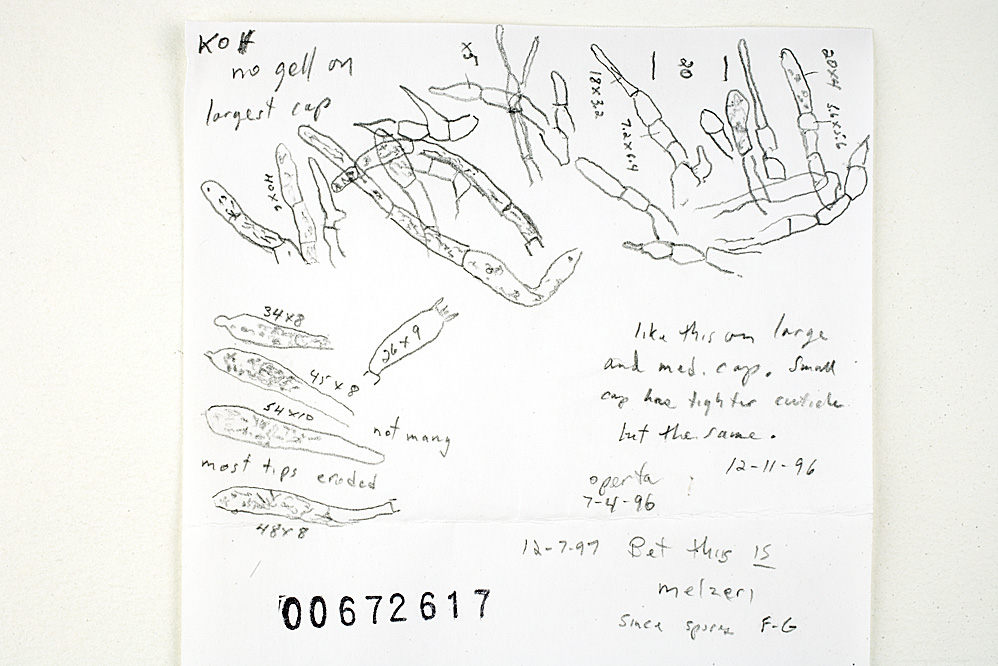 KOH
no gell on
largest cap
x5
18x3.2
7.2x6.4
20
20x4
5.6x5.6
40x6
34x8
26x9
45x8
54x10
not many
most tips eroded
48x8
like this on large
and med. cap. Small
cap has tighter cuticle
but the same.
12-11-96
operta
7-4-96
12-7-97 Bet this IS
melzeri
since spores F-G
00672617